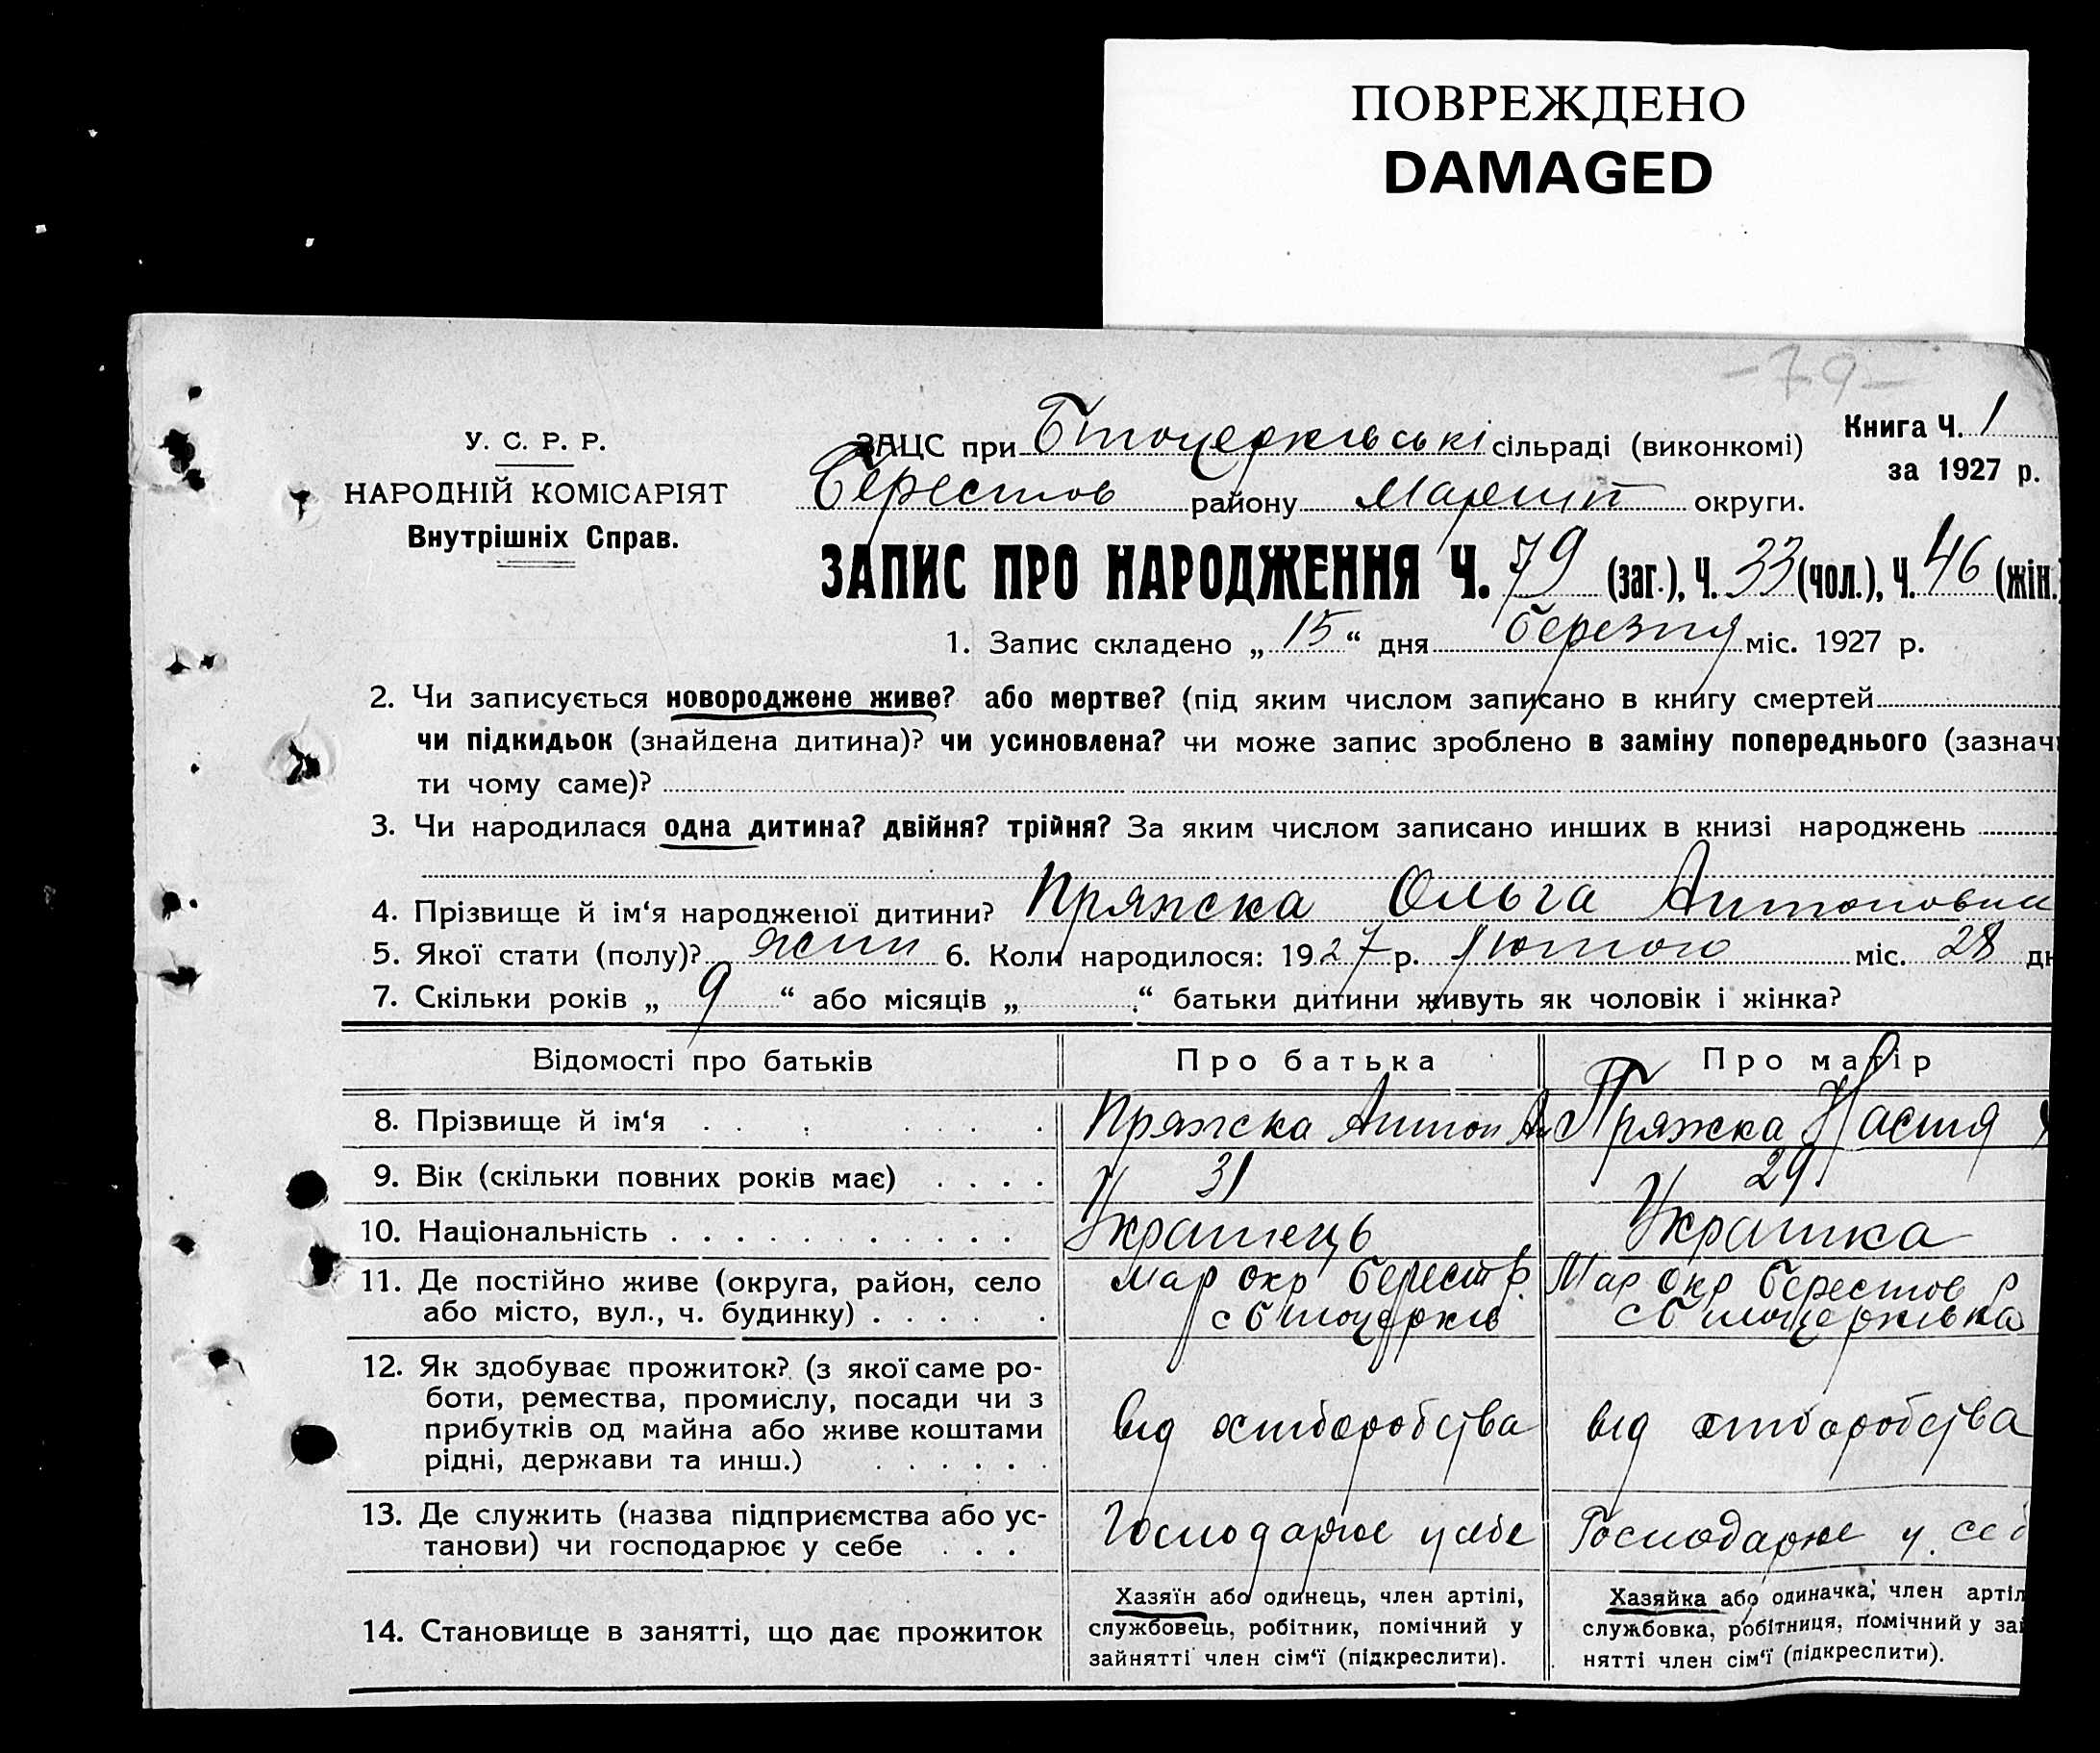 ПОВРЕЖДЕНО
DAMAGED
-79-
У. С. Р. Р.
НАРОДНІЙ КОМІСАРІЯТ
Внутрішніх Справ.
ЗАЦС при Білоцерківські сільраді (виконкомі)
Книга Ч. 1
за 1927 р.
Берестов району Маріуп округи.
ЗАПИС ПРО НАРОДЖЕННЯ Ч. 79 (заг.), Ч. 33 (чол.), Ч. 46 (жін.)
1. Запис складено „ 15 “ дня березня міс. 1927 р.
2. Чи записується новороджене живе? або мертве? (під яким числом записано в книгу смертей
чи підкидьок (знайдена дитина)? чи усиновлена? чи може запис зроблено в заміну попереднього (зазначи
ти чому саме)?
3. Чи народилася одна дитина? двійня? трійня? За яким числом записано инших в книзі народжень
4. Прізвище й ім‘я народженої дитини? Пряжка Ольга Антоновна
5. Якої стати (полу)? жіни 6. Коли народилося: 1927 р. лютого міс. 28 дн
7. Скільки років „ 9 “ або місяців „ “ батьки дитини живуть як чоловік і жінка?
Відомості про батьків Про батька Про матір
8. Прізвище й ім‘я Пряжка Антон Ан Пряжка Настя
9. Вік (скільки повних років має) 31 29
10. Національність Украінець Украінка
11. Де постійно живе (округа, район, село Мар окр Берест р. Мар окр Берестов р
або місто, вул., ч. будинку) с Білоцерків с Білоцерківка
12. Як здобуває прожиток? (з якої саме ро-
боти, ремества, промислу, посади чи з
прибутків од майна або живе коштами
рідні, держави та инш.)
від хліборобства від хліборобства
13. Де служить (назва підприємства або ус-
танови) чи господарює у себе
Господарює у себе Господарює у себ
14. Становище в занятті, що дає прожиток
Хазяїн або одинець, член артілі,
службовець, робітник, помічний у
зайнятті член сім‘ї (підкреслити).
Хазяйка або одиначка, член артіл
службовка, робітниця, помічний у зай
нятті член сім‘ї (підкреслити).